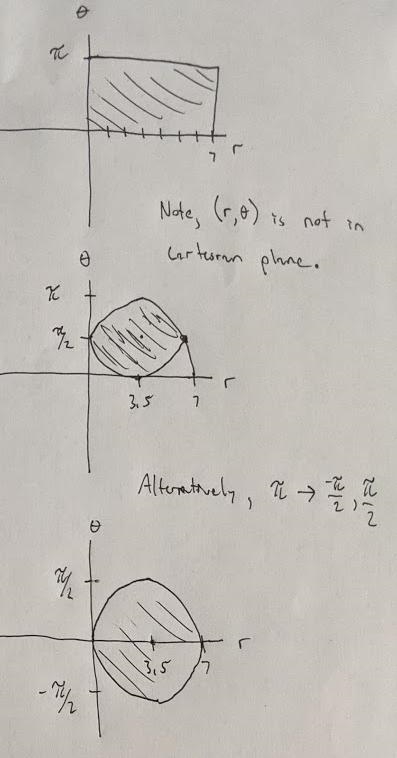 θ
π
7 r
Note, (r,θ) is not in
Cartesian plane.
θ
π
π/2
3.5 7 r
Alternatively, π → -π/2, π/2
θ
π/2
3.5 7 r
-π/2